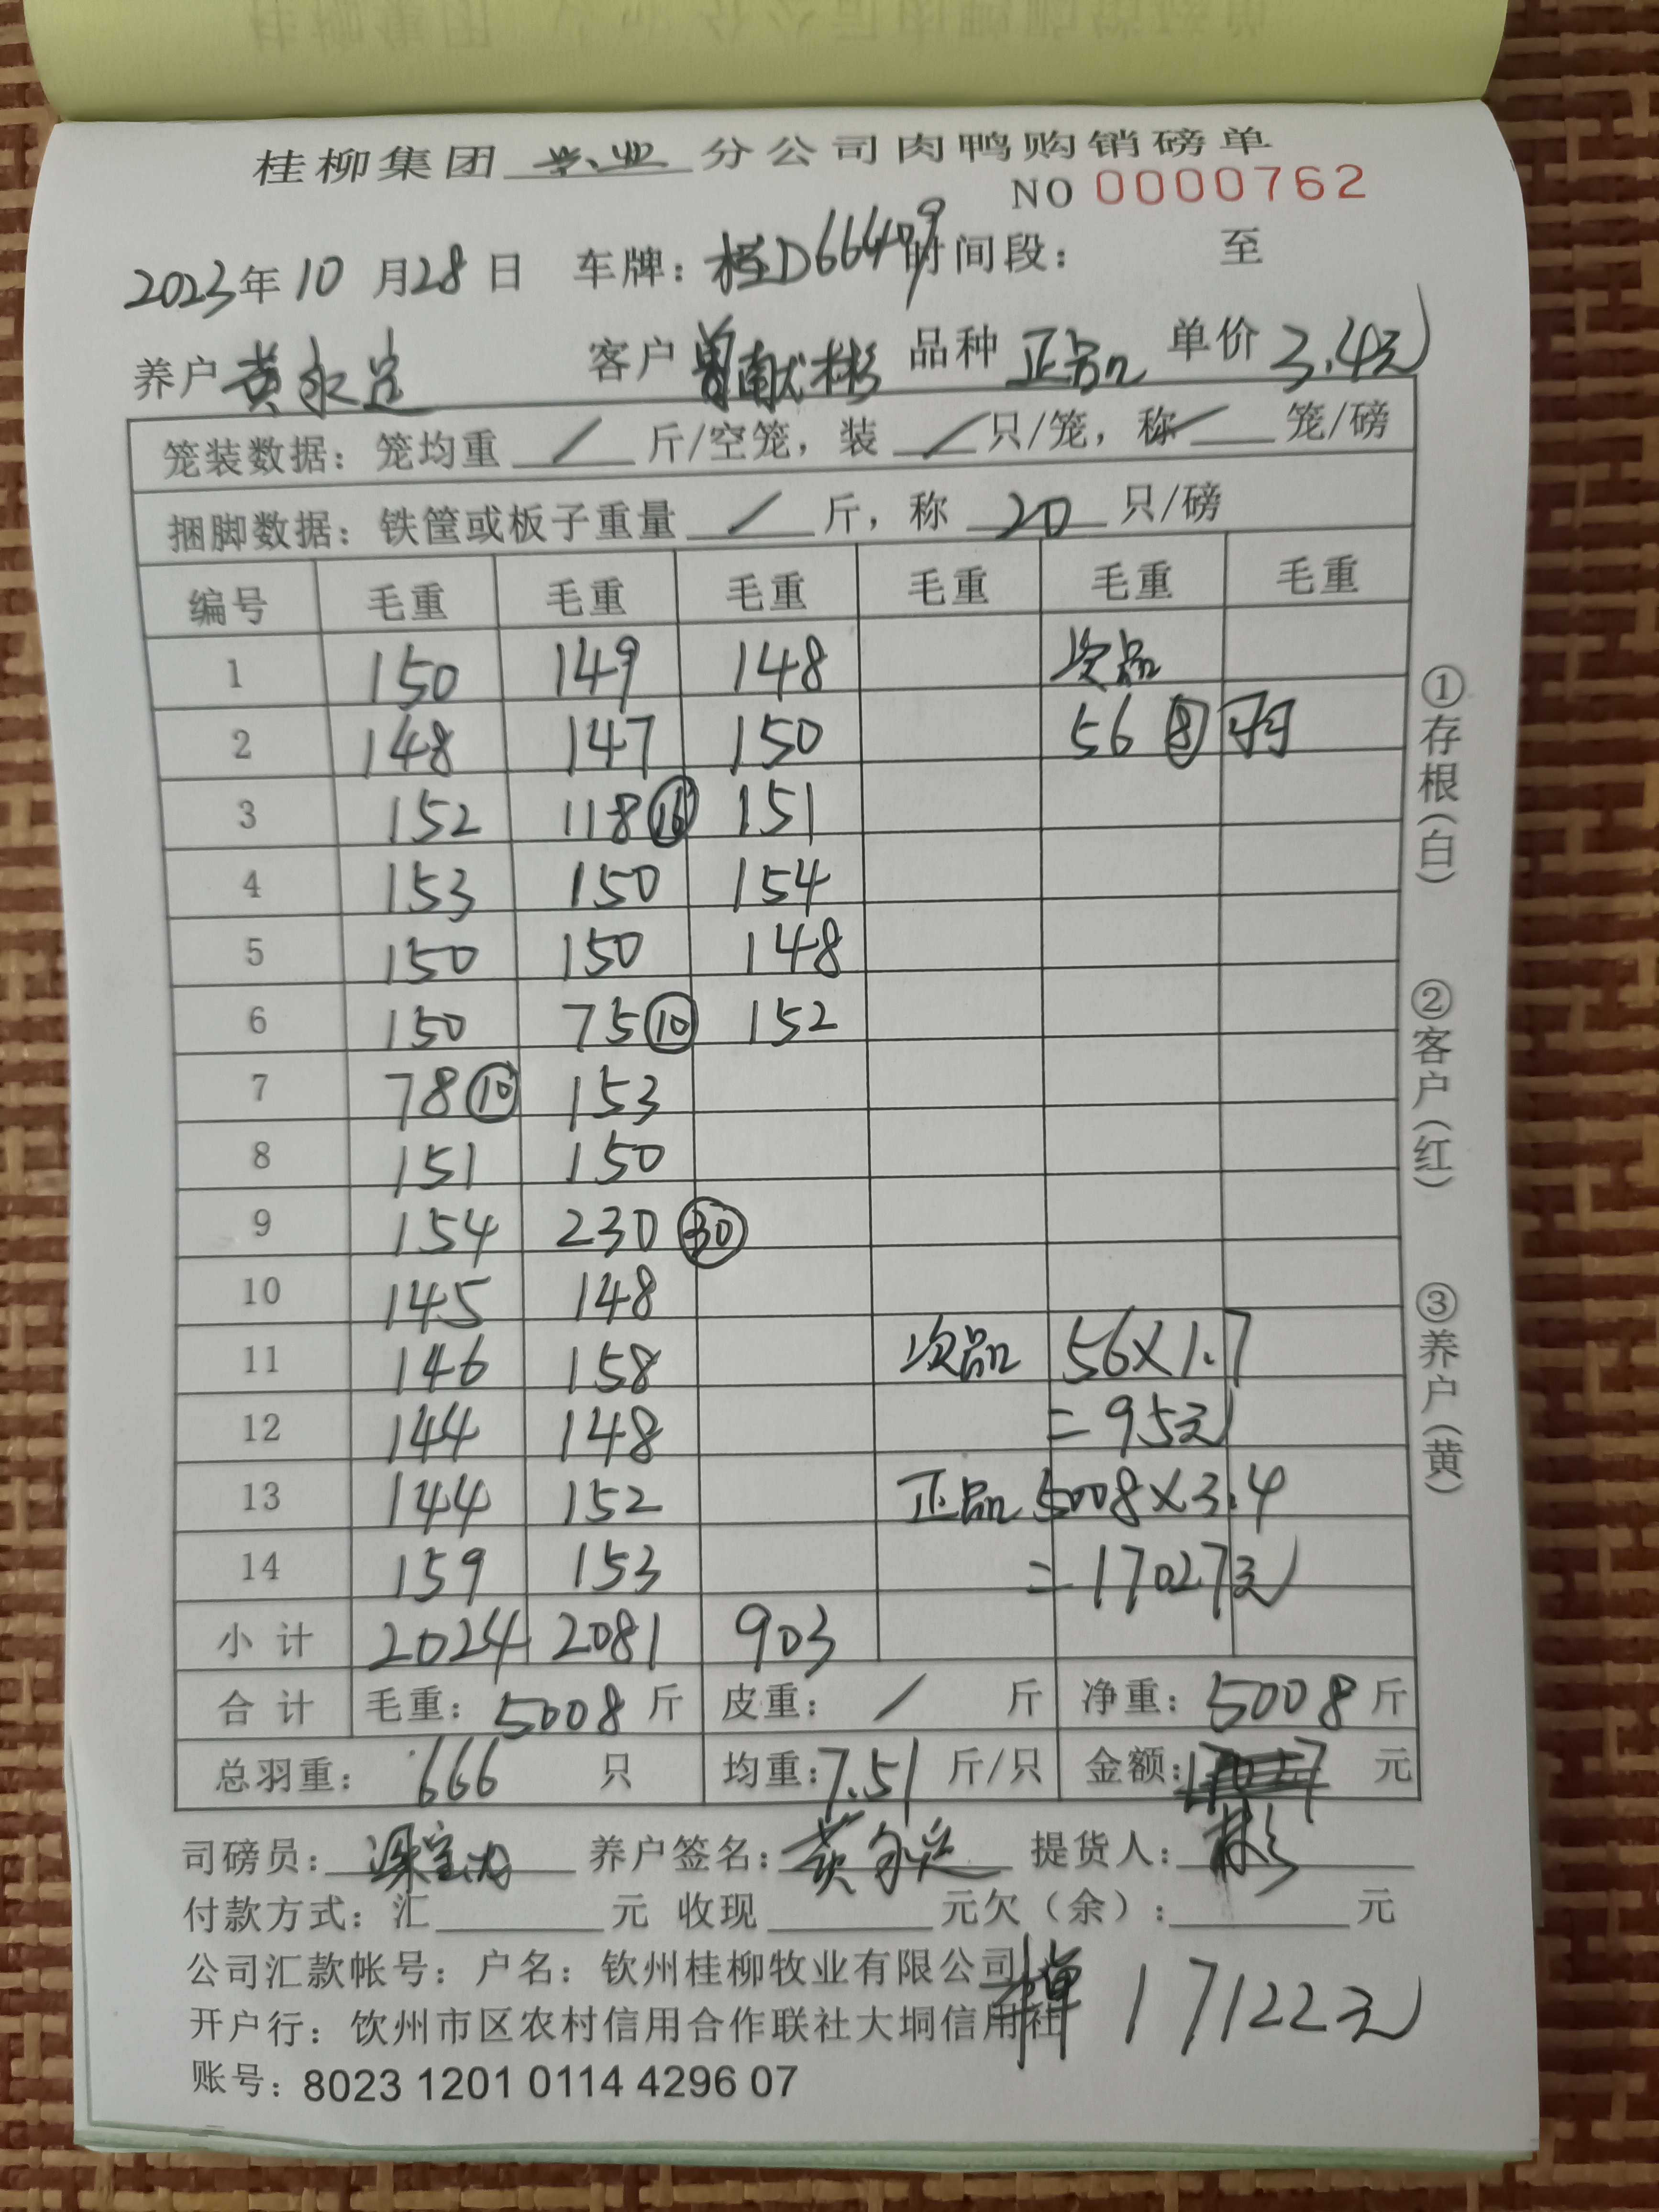 桂柳集团 兴业 分公司肉鸭购销磅单
NO 0000762
2023年 10 月 28 日 车牌：桂D66409 时间段： 至
养户 黄永定 客户 曾献彬 品种 正品 单价 3.4元
笼装数据：笼均重 / 斤/空笼，装 / 只/笼，称 / 笼/磅
捆脚数据：铁筐或板子重量 / 斤，称 20 只/磅
编号 毛重 毛重 毛重 毛重 毛重 毛重
1 150 149 148 次品
2 148 147 150 56 ⑧ 羽
3 152 118 ⑯ 151
4 153 150 154
5 150 150 148
6 150 75 ⑩ 152
7 78 ⑩ 153
8 151 150
9 154 230 ㉚
10 145 148
11 146 158 次品 56×1.7
12 144 148 =95元
13 144 152 正品 5008×3.4
14 159 153 =17027元
小计 2024 2081 903
合计 毛重：5008 斤 皮重：/ 斤 净重：5008 斤
总羽重：666 只 均重：7.51 斤/只 金额： 元
司磅员： 养户签名：黄永定 提货人：彬
付款方式：汇 元 收现 元欠（余）： 元
公司汇款帐号：户名：钦州桂柳牧业有限公司
17122元
开户行：饮州市区农村信用合作联社大垌信用社
账号：8023 1201 0114 4296 07
①存根（白）
②客户（红）
③养户（黄）